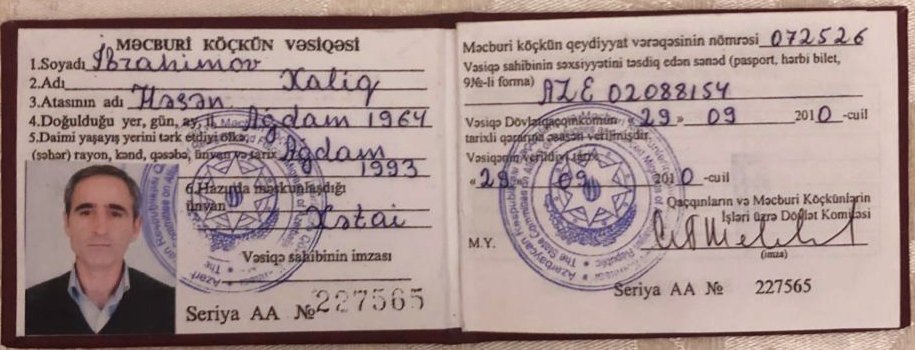 MƏCBURİ KÖÇKÜN VƏSİQƏSİ
1.Soyadı İbrahimov
2.Adı Xaliq
3.Atasının adı Həsən
4.Doğulduğu yer, gün, ay, il Ağdam 1964
5.Daimi yaşayış yerini tərk etdiyi ölkə,
(şəhər) rayon, kənd, qəsəbə, ünvan və tarix Ağdam
1993
6.Hazırda məskunlaşdığı
ünvan
Xətai
Vəsiqə sahibinin imzası
Seriya AA № 227565
Məcburi köçkün qeydiyyat vərəqəsinin nömrəsi 072526
Vəsiqə sahibinin şəxsiyyətini təsdiq edən sənəd (pasport, hərbi bilet,
9№-li forma)
AZE 02088154
Vəsiqə Dövlətqaçqınkomun «29» 09 2010-cuil
tarixli qərarına əsasən verilmişdir.
Vəsiqənin verildiyi tarix
«29 09 2010-cuil
Qaçqınların və Məcburi Köçkünlərin
İşləri üzrə Dövlət Komitəsi
M.Y.
(imza)
Seriya AA № 227565